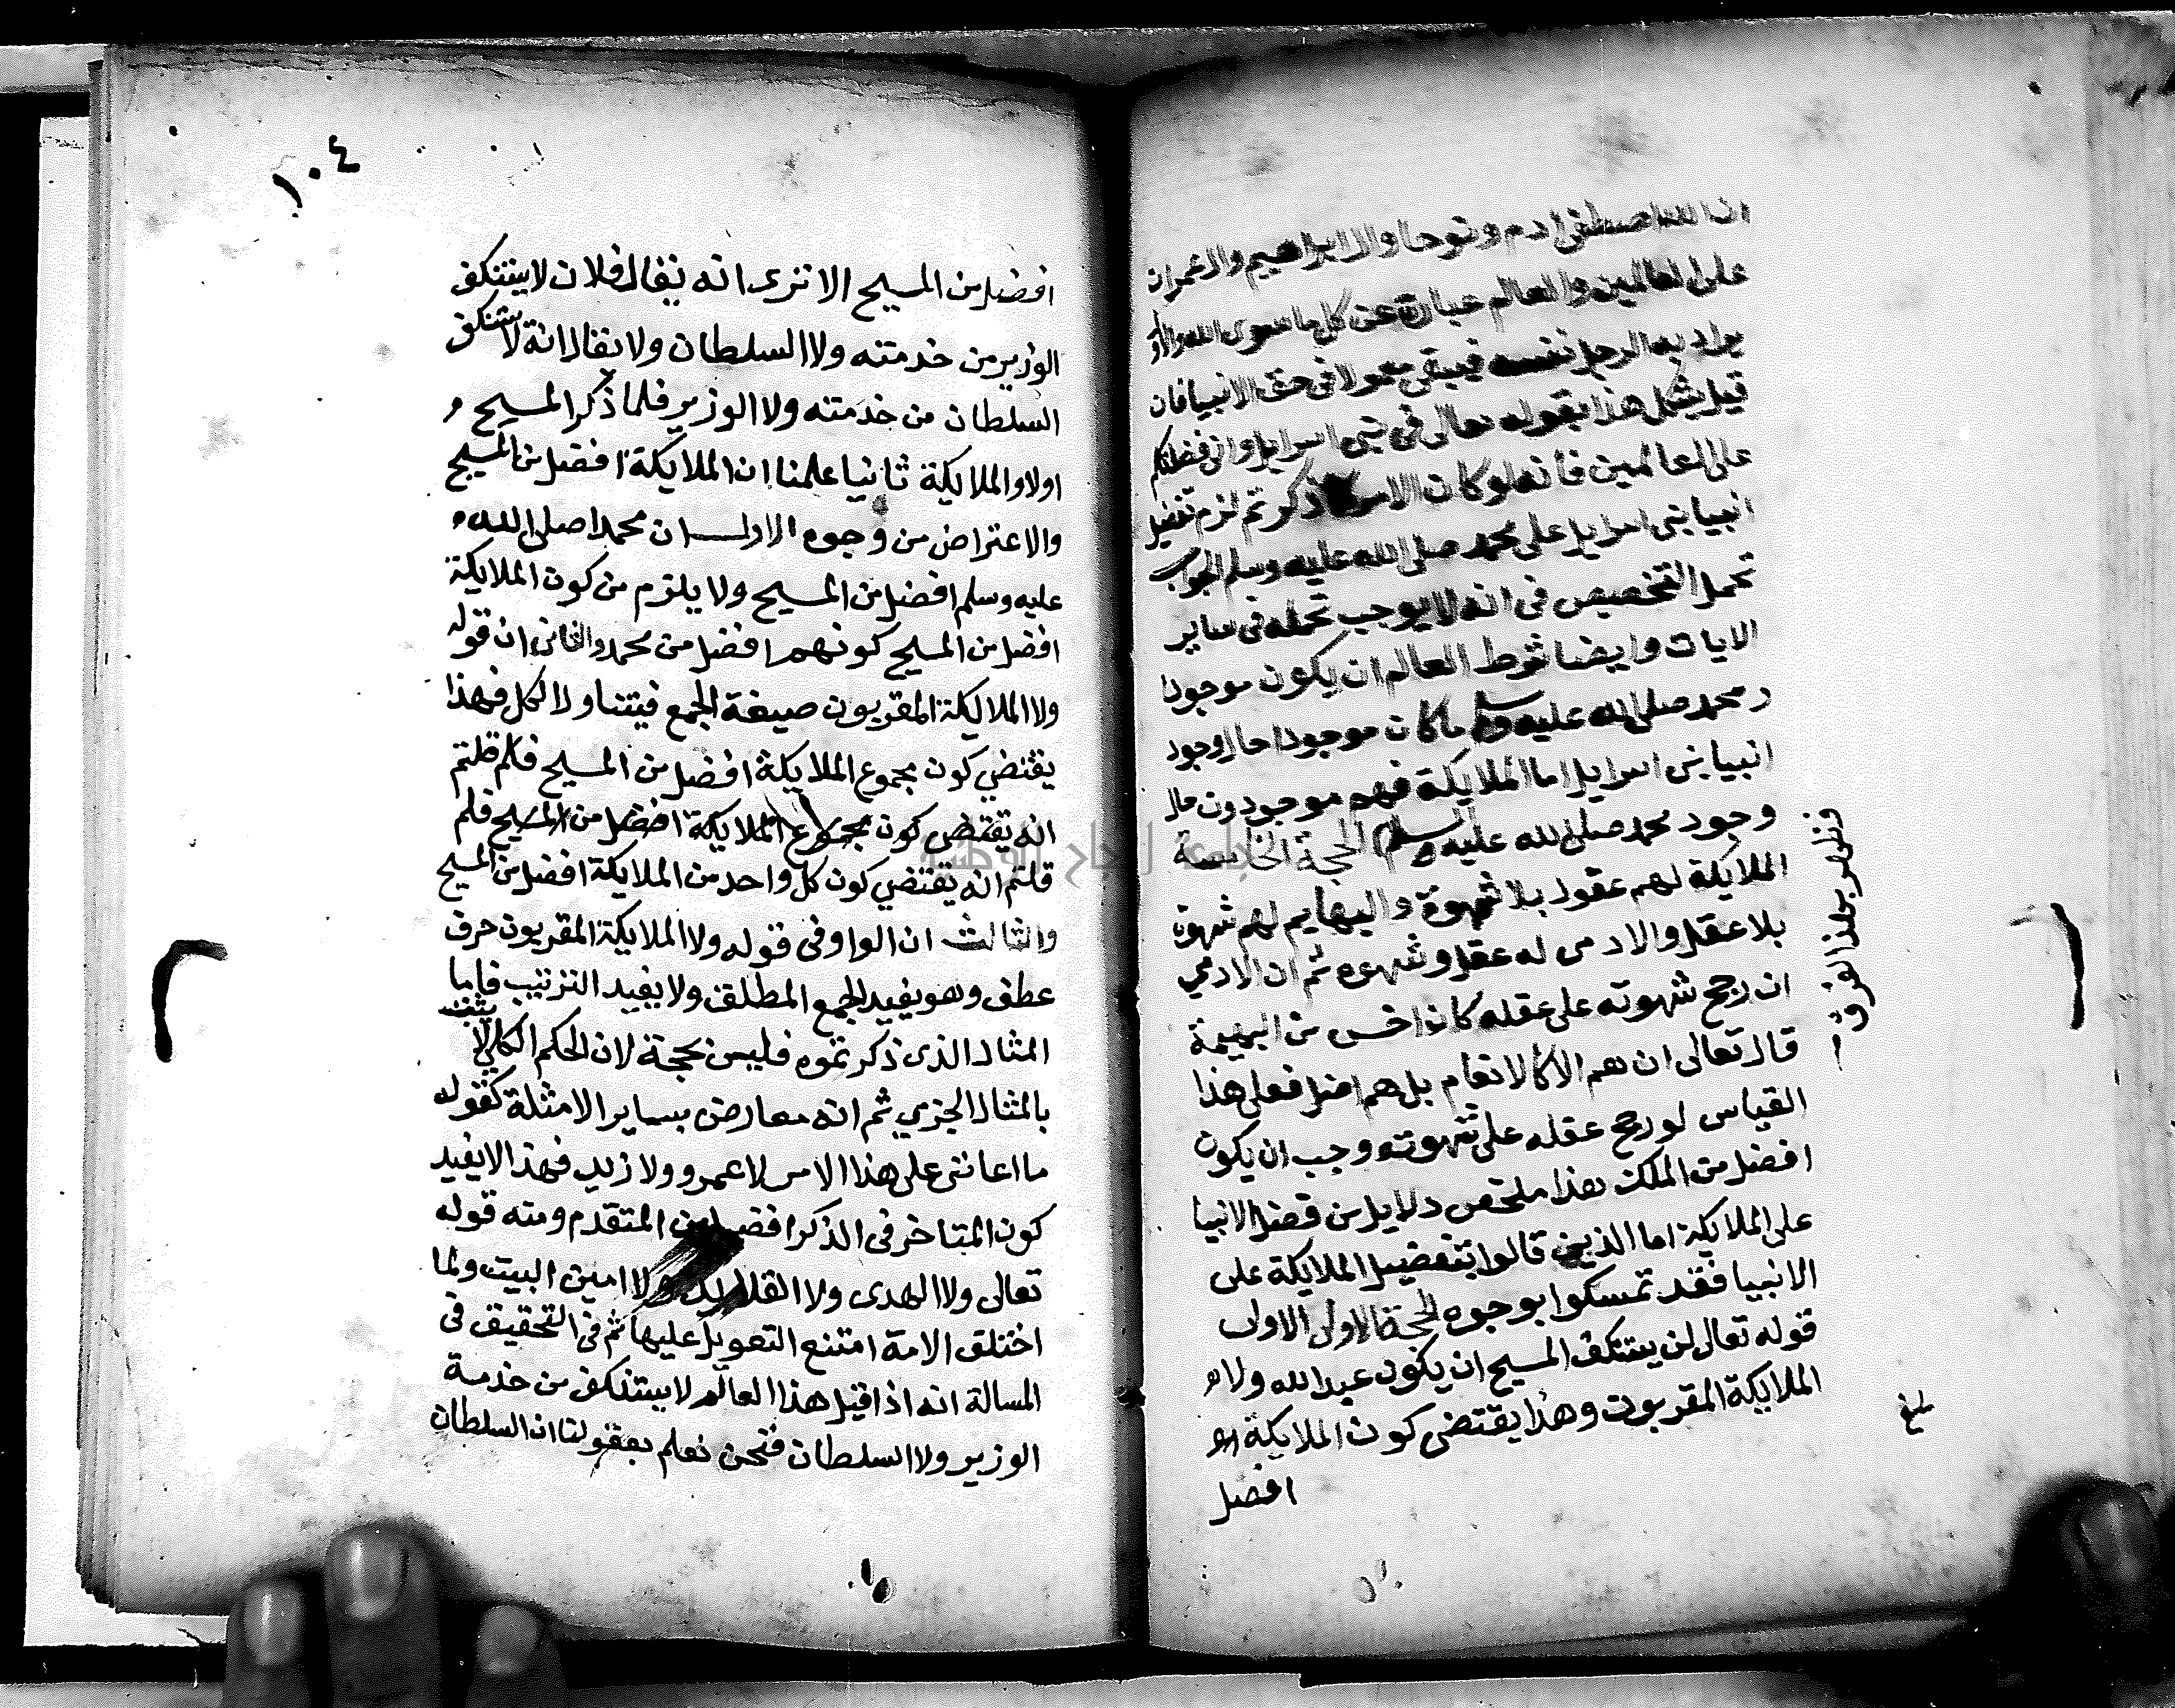 ان الله اصطفى ادم ونوحا وال ابراهيم وال عمران
على العالمين والعالم عبارة عن كل ما سوى الله والال
يراد به الرجل نفسه فيبقى معمولا فى حق الانبيا فان
قيل يشكل هذا بقوله تعالى فى بنى اسرايل وانى فضلتكم
على العالمين فانه لو كان الامر كما ذكرتم لزم تفضيل
انبيا بنى اسرايل على محمد صلى الله عليه وسلم الجواب
تحمل التخصيص فى انه لا يوجب تحمله فى ساير
الايات وايضا شرط العالم ان يكون موجودا
ومحمد صلى الله عليه وسلم ما كان موجودا حال وجود
انبيا بنى اسرايل اما الملايكة فهم موجودون حال
وجود محمد صلى الله عليه وسلم الحجة الخامسة
الملايكة لهم عقول بلا شهوة والبهايم لهم شهوة
بلا عقل والادمى له عقل وشهوه ثم ان الادمي
ان رجح شهوته على عقله كان اخس من البهيمة
قال تعالى ان هم الا كالانعام بل هم اضل فعلى هذا
القياس لو رجح عقله على شهوته وجب ان يكون
افضل من الملك هذا ملخص دلايل من فضل الانبيا
على الملايكة اما الذين قالوا بتفضيل الملايكة على
الانبيا فقد تمسكوا بوجوه الحجة الاولى الاولى
قوله تعالى لن يستنكف المسيح ان يكون عبدا لله ولا
الملايكة المقربون وهذا يقتضى كون الملايكة
افضل
فظهر بهذا الفرق
بلغ
١٠٤
افضل من المسيح الا ترى انه يقال فلان لا يستنكف
الوزير من خدمته ولا السلطان ولا يقال انه لا يستنكف
السلطان من خدمته ولا الوزير فلما ذكر المسيح
اولا والملايكة ثانيا علمنا ان الملايكة افضل من المسيح
والاعتراض من وجوه الاول ان محمدا صلى الله
عليه وسلم افضل من المسيح ولا يلزم من كون الملايكة
افضل من المسيح كونهم افضل من محمد والثانى ان قوله
ولا الملايكة المقربون صيغة الجمع فيتناول الكل فهذا
يقتضي كون مجموع الملايكة افضل من المسيح فلم قلتم
انه يقتضى كون مجموع الملايكة افضل من المسيح فلم
قلتم انه يقتضي كون كل واحد من الملايكة افضل من المسيح
والثالث ان الواو فى قوله ولا الملايكة المقربون حرف
عطف وهو يفيد الجمع المطلق ولا يفيد الترتيب فاما
المثال الذى ذكرتموه فليس بحجة لان الحكم الكلي لا يثبت
بالمثال الجزي ثم انه معارض بساير الامثلة كقوله
ما اعاننى على هذا الامر لا عمرو ولا زيد فهذا لا يفيد
كون المتاخر فى الذكر افضل من المتقدم ومنه قوله
تعالى ولا الهدى ولا القلايد ولا امين البيت ولما
اختلف الامة امتنع التعويل عليها ثم فى التحقيق فى
المسالة انه اذا قيل هذا العالم لا يستنكف من خدمة
الوزير ولا السلطان فنحن نعلم بعقولنا ان السلطان